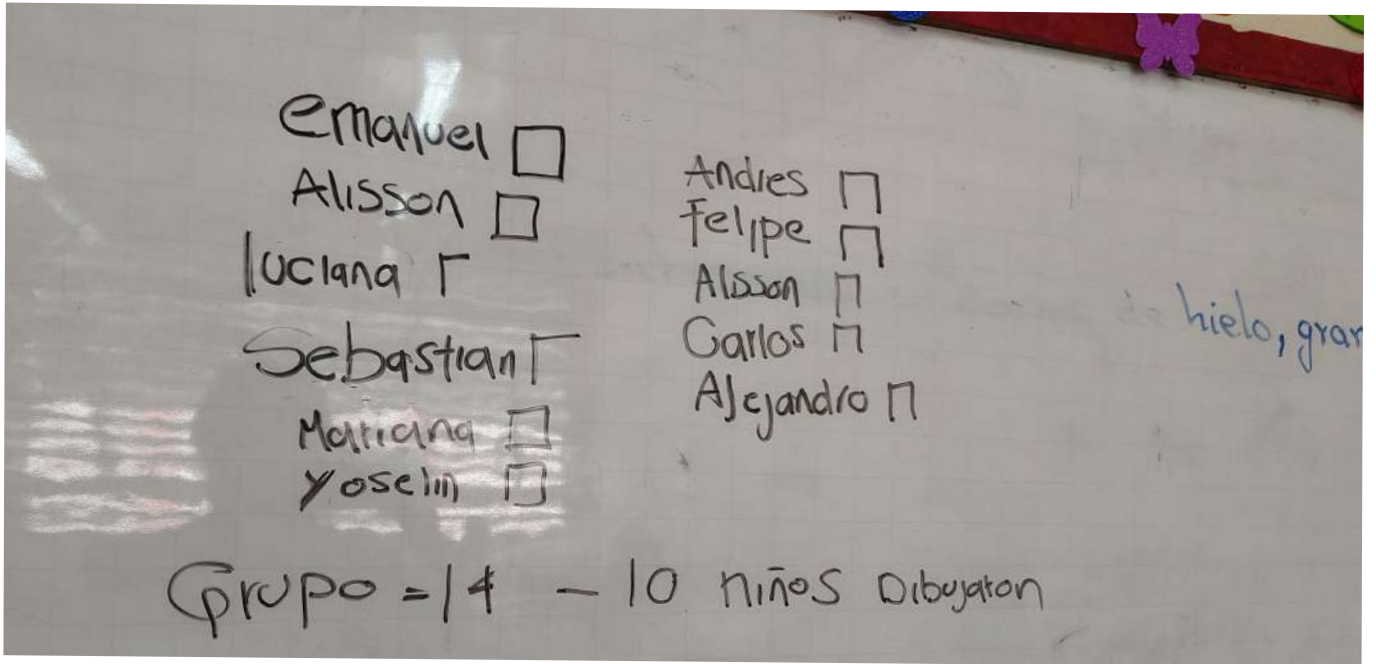 emanuel
Alisson
luciana
Sebastian
Mariana
Yoselin
Andres
Felipe
Alsson
Carlos
Alejandro
de hielo, gran
Grupo = 14 - 10 niños Dibujaron